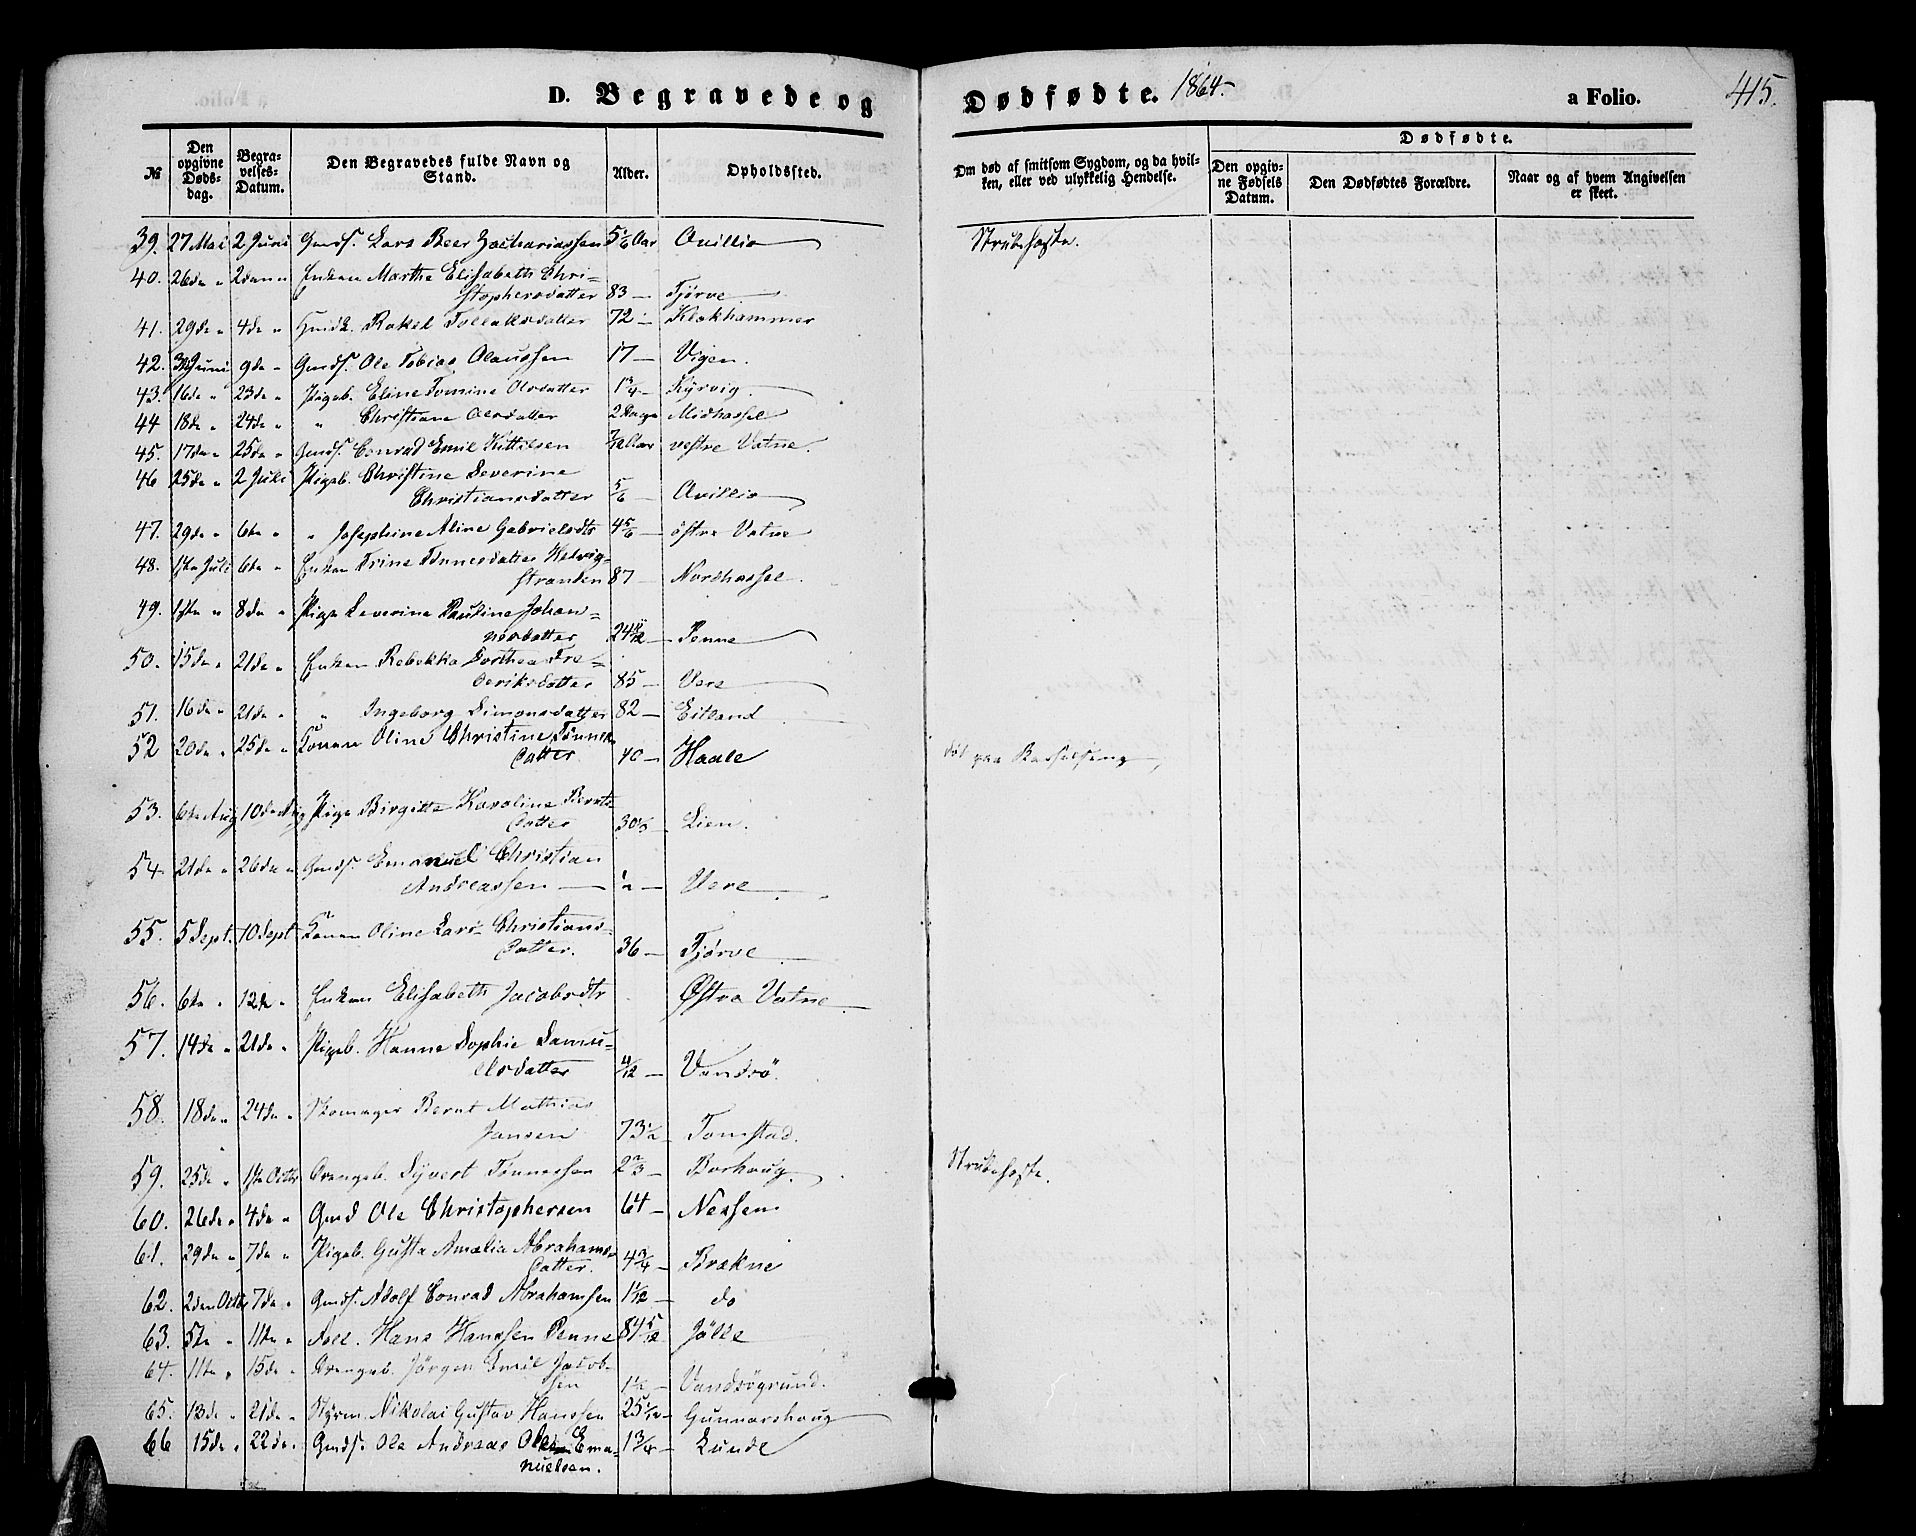 D. Begravede og Dødfødte. 1864. a Folio. 415.
№ Den opgivne Dødsdag. Begravelses-Datum. Den Begravedes fulde Navn og Stand. Alder. Opholdssted. Om død af smitsom Sygdom, og da hvilken, eller ved ulykkelig Hendelse. Dødfødte. Den opgivne Fødsels Datum. Den Dødfødtes Forældre. Naar og af hvem Angivelsen er skeet.
39. 27 Mai 2 Juni Gmds. Lars Beer Zachariassen 5 1/6 Aar Ovillio Strubehoste.
40. 26de " 2den " Enken Marthe Elisabeth Chri-
stophersdatter 83 — Tjørve
41. 29de " 4de " Gmdk. Rakel Tollaksdatter 72 — Klokhammer
42. Juni 9de " Gmds. Ole Tobias Olaussen 17 — Vigen.
43. 16de " 23de " Pigeb. Eline Tomine Olsdatter 1 3/4 — Kjørvig
44 18de " 24de " " Christiane Olsdatter 2 Dage Midhassel
45. 17de " 25de " Gmds. Conrad Emil Kittelsen Aar vestre Vatne.
46 25de " 2 Juli Pigeb. Christine Severine
Christiansdatter 5/6 — Ovillio
47. 29de " 6te " " Josephine Aline Gabrielsdtr 4 5/6 — østre Vatne
48. 1ste Juli 6te " Enken Trine Tønnesdatter Kelvig-
stranden 87 — Nordhassel.
49. " 8de " Pige Severine Pauline Johan-
nesdatter 24 — Penne
50. 15de " 21de " Enken Rebekka Dorthea Fre-
deriksdatter 85 — Vere
51. 16de " 21de " " Ingeborg Simonsdatter 82 — Eitland
52 20de " 25de " Konen Oline Christine Tønnes-
datter. 40 — Haale død paa Barselseng
53. 6te Aug 10de Aug Pige Birgitte Karoline Bernts-
datter 30 1/2 Lien.
54. 21de " 26de " Gmds. Emanuel Christian
Andreassen — 1/2 — Vere
55. 5 Sept. 10 Sept Konen Oline Lars- Christians-
datter. 36 — Tjørve
56. 6te " 12te " Enken Elisabeth Jacobsdtr Østre Vatne
57. 14de " 21de " Pigeb. Hanne Sophie Samu-
elsdatter 4/12 — Vandsö.
58. 18de " 24de " Skomager Bernt Mathias
Jansen 73 1/2 — Tomstad.
59. 25de " 1ste Octbr Drengeb. Syvert Tønnessen 2 2/3 — Borhoug. Strubehoste.
60. 26de " 4de " Gmd Ole Christophersen 64 — Nessen
61. 29de " 7de " Pigeb. Gusta Amalia Abrahams-
datter. 4 3/4 — Brækne
62. 2den Octbr 7de " Gmds. Adolf Conrad Abrahamsen 1 1/2 — do
63. 5te " 11te " Hans Hanssen Penne 84 5/12 Jölle
64. 11te " 15de " Drengeb. Jörgen Emil Jacob-
sen 1 1/2 — Vandsögrund.
65. 13de " 21de " Styrm. Nikolai Gustav Hanssen 25 — Gunnarshoug
66 15de " 22de " Gmds. Ole Andreas Ema-
nuelsen. 1 3/4 — Lunde